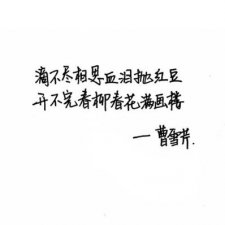 滴不尽相思血泪抛红豆
开不完春柳春花满画楼
一曹雪芹.